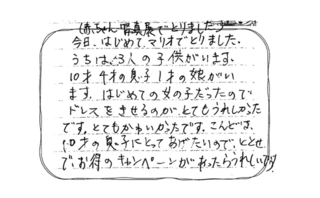 (赤ちゃん写真展でとりました)
今日、はじめてマリオでとりました。
うちは、3人の子供がいます。
10才 4才の息子 1才の娘がい
ます。はじめての女の子だったので
ドレスをきせるのが、とてもうれしかった
です。とてもかわいかったです。こんどは、
10才の息子にとってあげたいので、
で、お得のキャンペーンがあったらうれしいです。